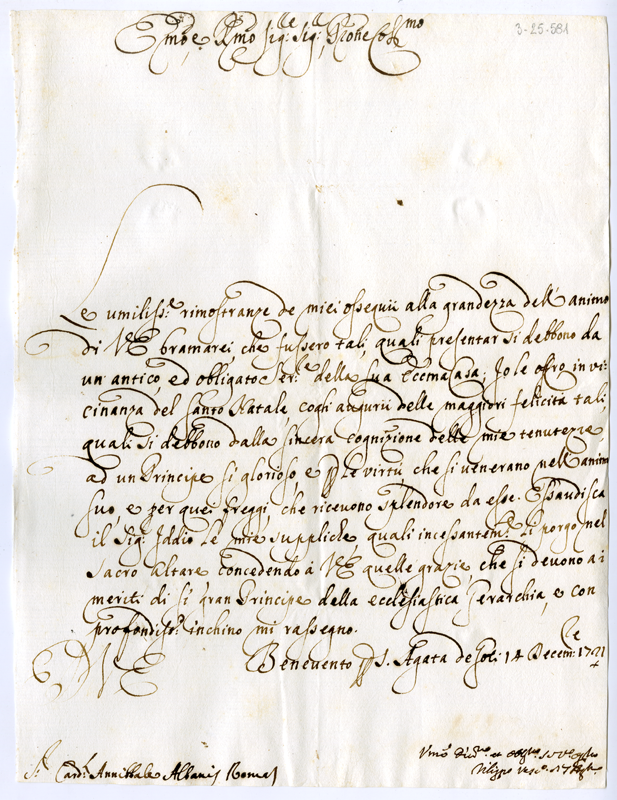 3-25-581
Em̃o e Rm̃o Sig.re Sig.r Prone Col.mo
Le umiliss.e rimostranze de miei ossequii alla grandezza dell'animo
di VE bramarei, che fussero tali, quali presentar si debbono da
un antico, ed obligato Ser.le della sua Ecc͠ma Casa; Io le offro in vi:
cinanza del Santo Natale, cogli augurii delle maggiori felicità tali,
quali si debbono dalla sincera cognizione delle mie tenutezze
ad un Principe si glorioso, e p le virtù che si venerano nell'animo
suo, e per quei freggi, che ricevono splendore da esse. Essaudisca
il Sig.r Iddio le mie suppliche, quali incessantem.e li porgo nel
Sacro Altare concedendo à VE quelle grazie, che si devono a i
meriti di si gran Principe della ecclesiastica Gerarchia, e con
profondiss.o inchino mi rassegno.
Benevento p S. Agata de Goti 14 Decem.re 1721
DVE
S.r Card.l Annibale Albani Roma
Um̃o et
Filippo